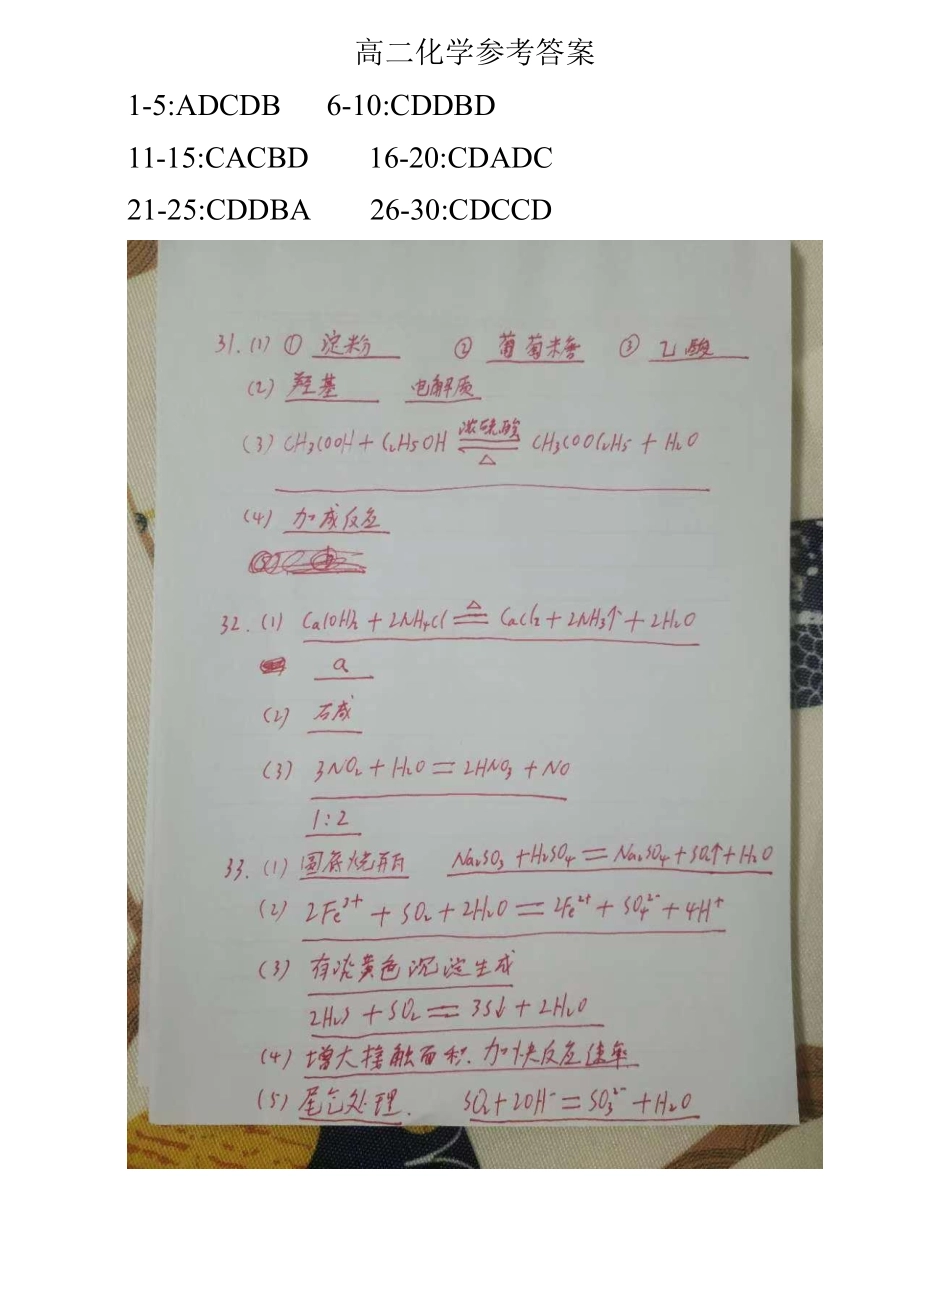 高二化学参考答案
1-5:ADCDB 6-10:CDDBD
11-15:CACBD 16-20:CDADC
21-25:CDDBA 26-30:CDCCD
31.(1)① 淀粉 ② 葡萄糖 ③ 乙酸
(2) 羟基 电解质
(3) CH₃COOH + C₂H₅OH 浓硫酸 ⇌ △ CH₃COOC₂H₅ + H₂O
(4) 加成反应
32.(1) Ca(OH)₂ + 2NH₄Cl △ = CaCl₂ + 2NH₃↑ + 2H₂O
a
(2) 石咸
(3) 3NO₂ + H₂O = 2HNO₃ + NO
1:2
33.(1) 圆底烧瓶 Na₂SO₃ + H₂SO₄ = Na₂SO₄ + SO₂↑ + H₂O
(2) 2Fe³⁺ + SO₂ + 2H₂O = 2Fe²⁺ + SO₄²⁻ + 4H⁺
(3) 有淡黄色沉淀生成
2H₂S + SO₂ = 3S↓ + 2H₂O
(4) 增大接触面积、加快反应速率
(5) 尾气处理. SO₂ + 2OH⁻ = SO₃²⁻ + H₂O